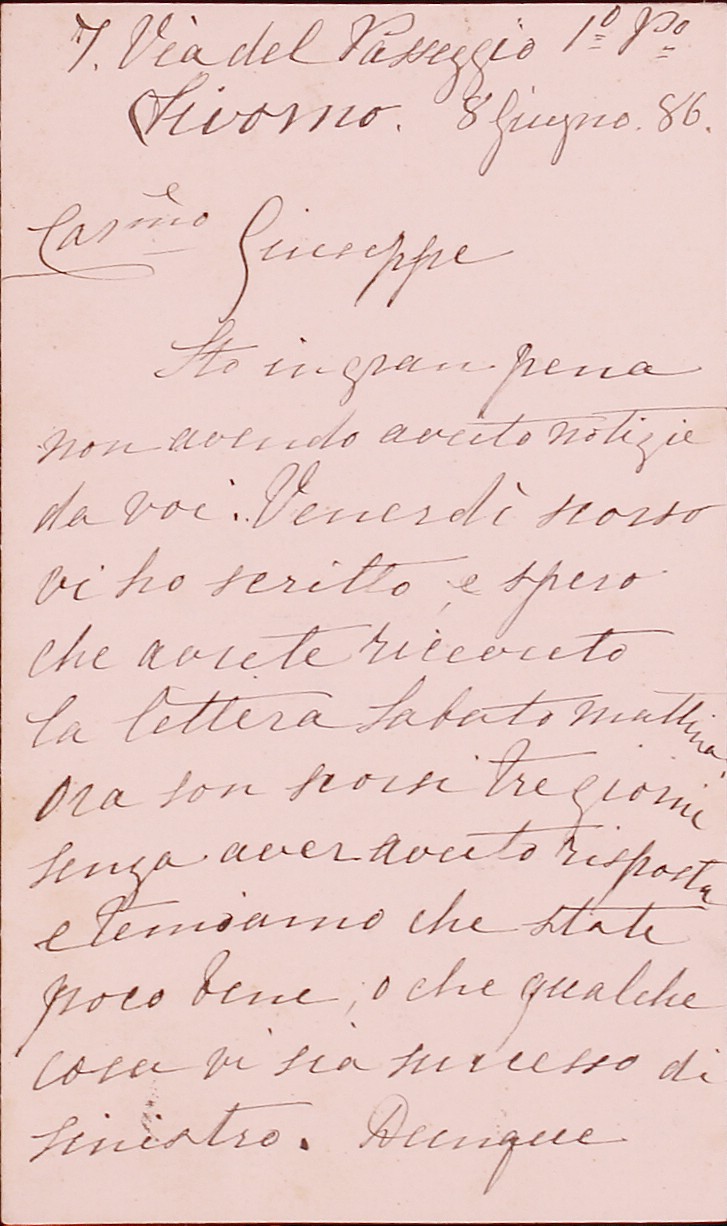 7. Via del Passeggio 1º Pº
Livorno. 8 Giugno. 86.
Carmº Giuseppe
Sto in gran pena
non avendo avuto notizie
da voi. Venerdì scorso
vi ho scritto, e spero
che avrete ricevuto
la lettera Sabato mattina.
Ora son scorsi tre giorni
senza aver avuto risposta
e temiamo che state
poco bene, o che qualche
cosa vi sia successo di
sinistro. Dunque